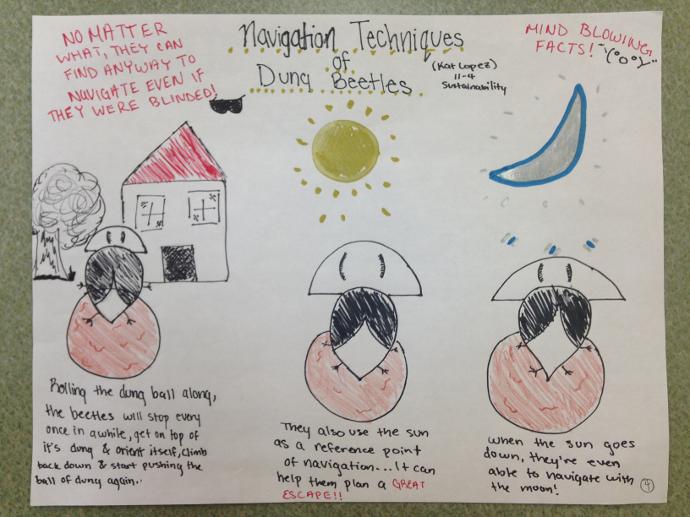 NO MATTER
WHAT, THEY CAN
FIND ANYWAY TO
NAVIGATE EVEN IF
THEY WERE BLINDED!
Navigation Techniques
of
Dung Beetles
(Kat Lopez)
11-4
Sustainability
MIND BLOWING
FACTS!
Rolling the dung ball along,
the beetles will stop every
once in awhile, get on top of
it's dung & orient itself, climb
back down & start pushing the
ball of dung again..
They also use the sun
as a reference point
of navigation...It can
help them plan a GREAT
ESCAPE!!
when the sun goes
down, they're even
able to navigate with
the moon!
4